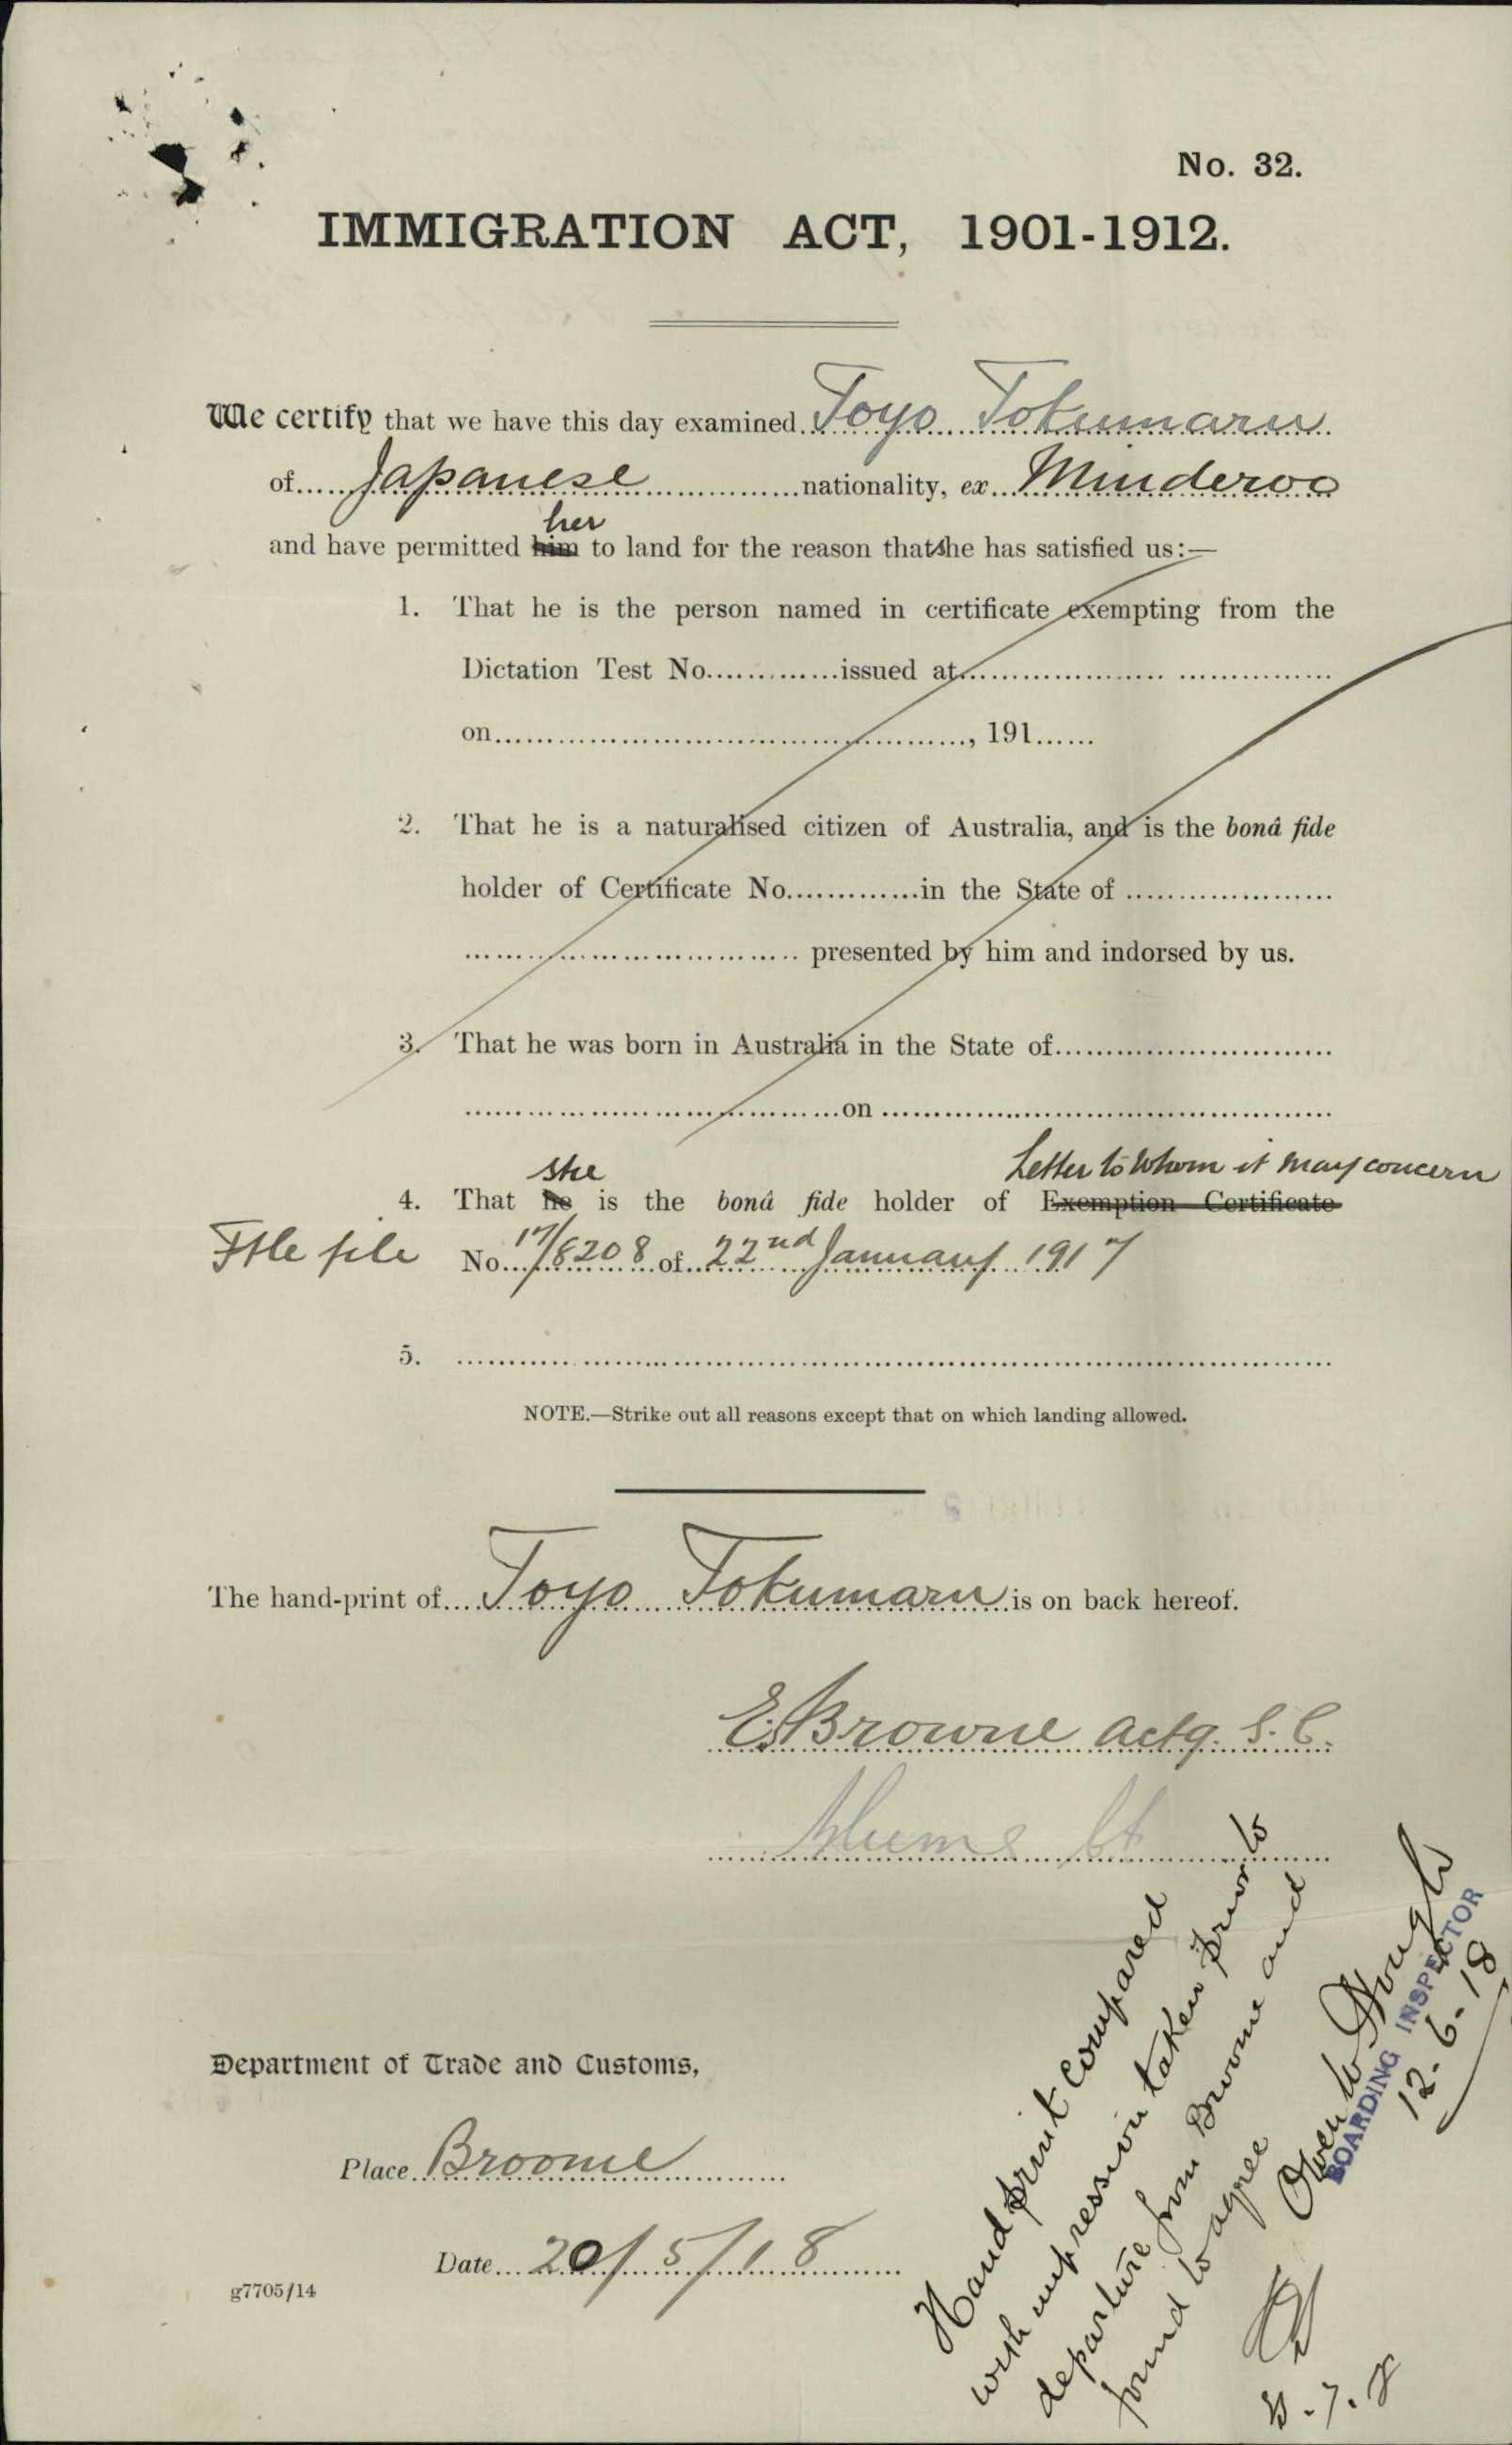 No. 32.
IMMIGRATION ACT, 1901-1912.
We certify that we have this day examined Toyo Tokumaru
of Japanese nationality, ex Minderoo
her
and have permitted him to land for the reason that she has satisfied us:—
1. That he is the person named in certificate exempting from the
Dictation Test No. issued at
on , 191
2. That he is a naturalised citizen of Australia, and is the bonâ fide
holder of Certificate No. in the State of
presented by him and indorsed by us.
3. That he was born in Australia in the State of
on
she Letter to whom it may concern
4. That he is the bonâ fide holder of Exemption Certificate
Ftle file No. 17/8208 of 22nd January 1917
5.
NOTE.—Strike out all reasons except that on which landing allowed.
The hand-print of Toyo Tokumaru is on back hereof.
E. Browne actg. S.C.
Department of Trade and Customs,
Place Broome
Date 20/5/18
g7705/14
Hand print compared
with impression taken prior to
departure from Broome and
found to agree
BOARDING INSPECTOR
12.6.18